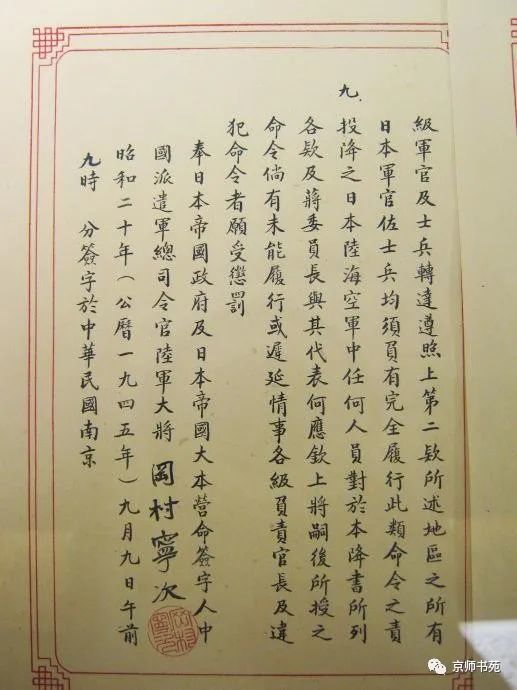 級軍官及士兵轉達遵照上第二款所述地區之所有
日本軍官佐士兵均須負有完全履行此類命令之責
九、投降之日本陸海空軍中任何人員對於本降書所列
各款及蔣委員長與其代表何應欽上將嗣後所授之
命令倘有未能履行或遲延情事各級負責官長及違
犯命令者願受懲罰
奉日本帝國政府及日本帝國大本營命簽字人中
國派遣軍總司令官陸軍大將 岡村寧次
昭和二十年(公曆一九四五年)九月九日午前
九時 分簽字於中華民國南京
京师书苑